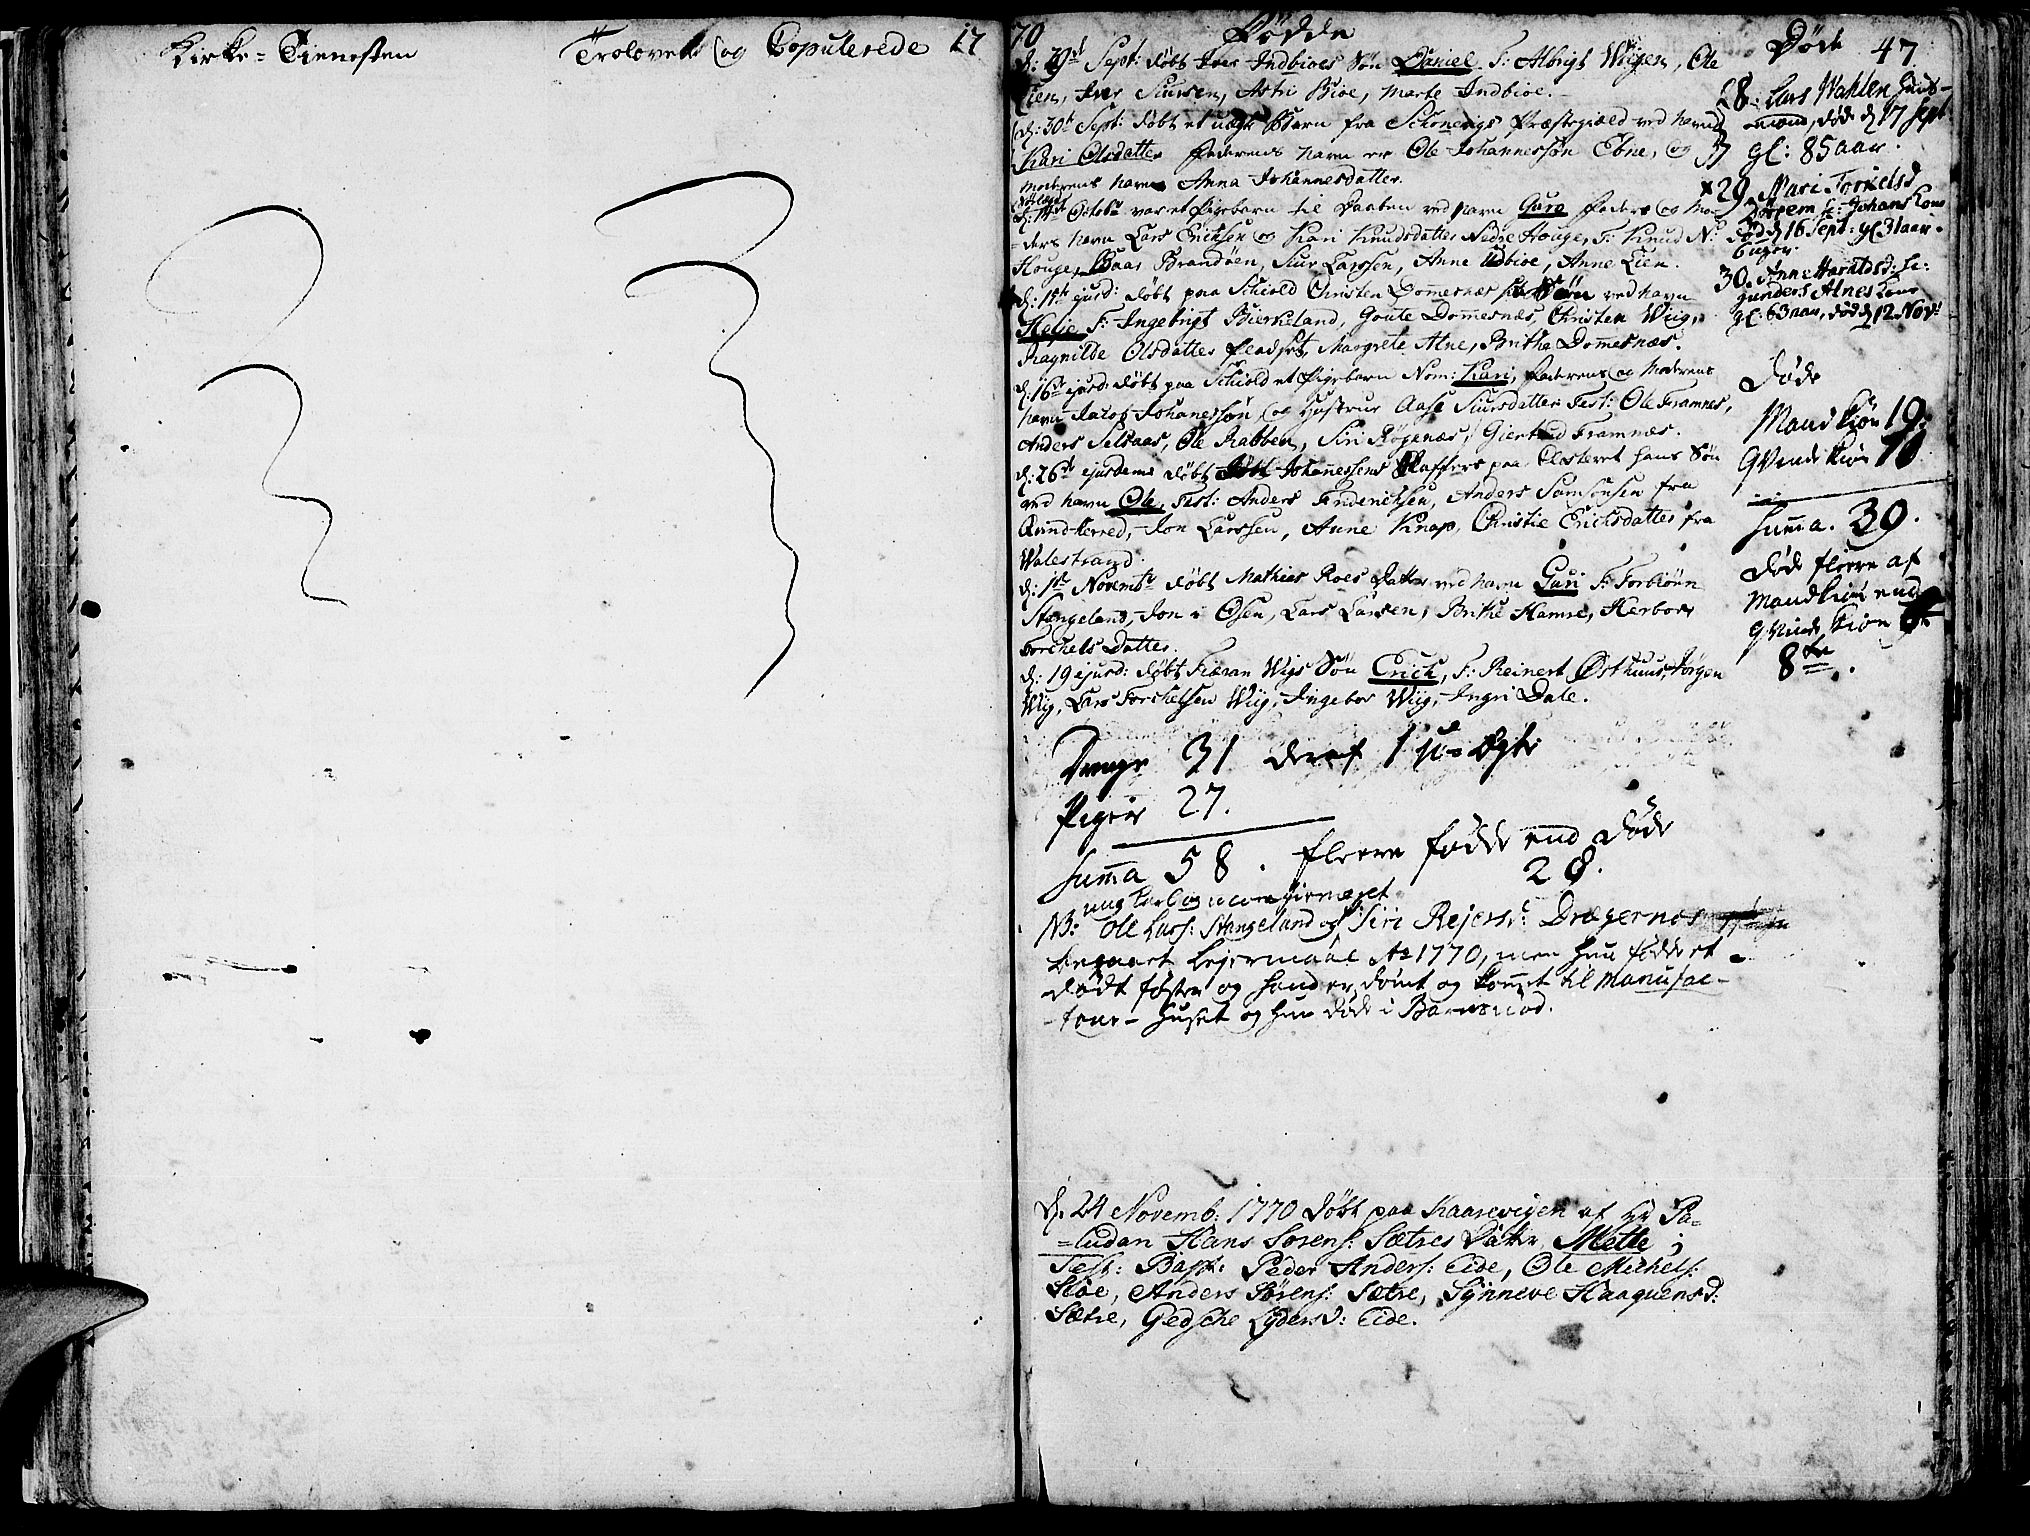 Kirke-Tienesten
Trolovede og Copulerede 17
70
Fødde
d: 29de Sept: døbt Iver Indbioes Søn Daniel T: Albrigt Wiigen, Ole
Lien, Iver Siursen, Astri Bioe, Marte Indbioe.
d: 30te Sept: døbt et uægte Barn fra Schonevigs Præstegiæld ved navn
Kari Olsdatter Faderens navn er Ole Johannessøn Ebne, og
Moderens navn Anna Johannesdatter.
d: 14de Octobr var et Pigebarn til Daaben ved navn Guro Faders og Mo-
-ders navn Lars Erichsen og Kari Knudsdatter Nedre Houge, T: Knud N:
Houge, Baar Brandøen, Siur Larssen, Anne Udbioe, Anne Lien.
d: 15de ejusd: døbt paa Schiold Christen Domesnæs Søn ved navn
Helje T: Ingebrigt Bierkeland, Goute Domesnæs, Christen Wiig,
Ragnilde Olsdatter Margrete Alne, Brithe Domesnæs.
d: 16de ejusd: døbt paa Schiold et Pigebarn Nom: Kari, Faderens og Moderens
navn Jacob Johanessøn og Hustrue Aase Siursdatter Test: Ole Framnes,
Anders Selsaas, Ole Rabben, Siri Røgenæs, Giertrud Framnæs.
d: 26de ejusdem døbt Johannessens paa Closteret hans Søn
ved navn Ole, Test: Anders Friderichsen, Anders Samsonsen fra
Qvindherred, Jon Larssen, Anne Knap, Christie Erichsdatter fra
Walestrand.
d: 1te Novembr døbt Mathias Roes Datter ved navn Guri T: Torbiørn
Stangeland, Jon i Øsen, Lars Larsen, Brithe Hamre, Herbor
Torchels Datter.
d: 19 ejusd: døbt Wigs Søn Erich, T: Reinert Østhuus, Jørgen
Wiig, Lars Torchelsen Wiig, Ingebor Wiig, Ingri Dale.
Drenge 31 deraf 1 u-ægte
Piger 27.
Summa 58. fleere fødde end døde
28.
ung Karl og ucon
NB: Ole Lars: Stangeland og Siri Rejersd: Drægernes
begaaet Lejermaal Ao 1770, men hun fødde et
dødt foster og hand er dømt og komet til Manufac-
-tour-Huset og hun døde i Barnsnød.
d. 24 Novemb: 1770 døbt paa Kaarevigen af Hr Pa-
-ludan Hans Sørens: Sætres Datter Mette;
Test: Bapt: Peder Anders: Eide, Ole Michels:
Anders Sørens: Sætre, Synneve Haaquensd:
Sætre, Gedsche Lydersd: Eide.
Døde 47
28. Lars Wahlen Huus-
-mand, døde d 17 Sept
gl: 85 aar.
x29 Mari Torkelsd
Johans Kone
død d 16 Sept: gl 31 aar.
30. Anne Haraldsd:
Gunders Alnes Kone
gl: 63 aar, død d 12 Nov:
Døde
Mandkiøn 19:
Qvindekiøn 11
Summa. 30.
Døde fleere af
Mandkiøn end
Qvindekiøn
8te.